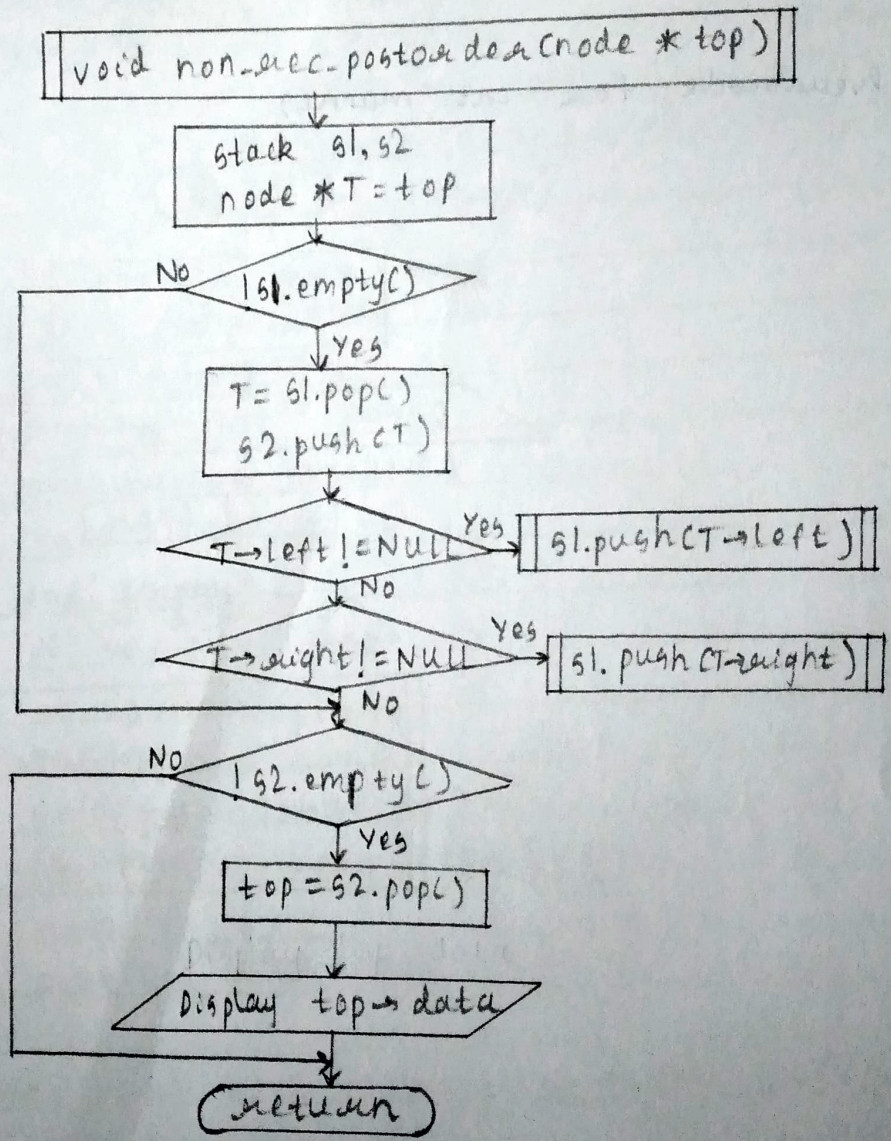 void non_rec_postorder(node * top)
stack s1, s2
node *T = top
!s1.empty()
No
Yes
T = s1.pop()
s2.push(T)
T→left != NULL
Yes
s1.push(T→left)
No
T→right != NULL
Yes
s1.push(T→right)
No
!s2.empty()
No
Yes
top = s2.pop()
Display top→data
return